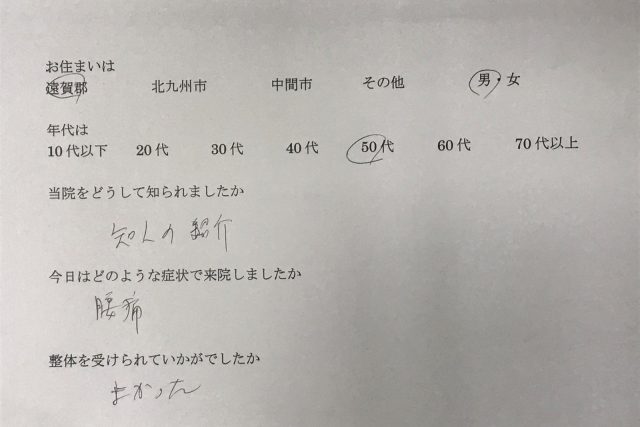 お住まいは
遠賀郡 北九州市 中間市 その他 男・女
年代は
10代以下 20代 30代 40代 50代 60代 70代以上
当院をどうして知られましたか
知人の紹介
今日はどのような症状で来院しましたか
腰痛
整体を受けられていかがでしたか
よかった